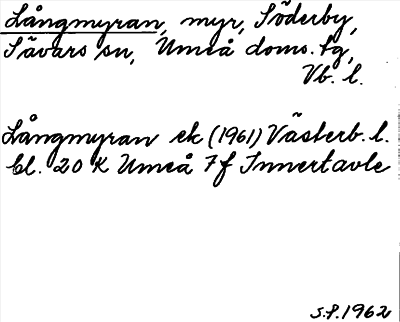 Långmyran, myr, Söderby,
Sävars sn, Umeå doms. tg,
Vb. l.
Långmyran ek (1961) Västerb. l.
bl. 20 K Umeå 7 f Innertavle
S.F. 1962